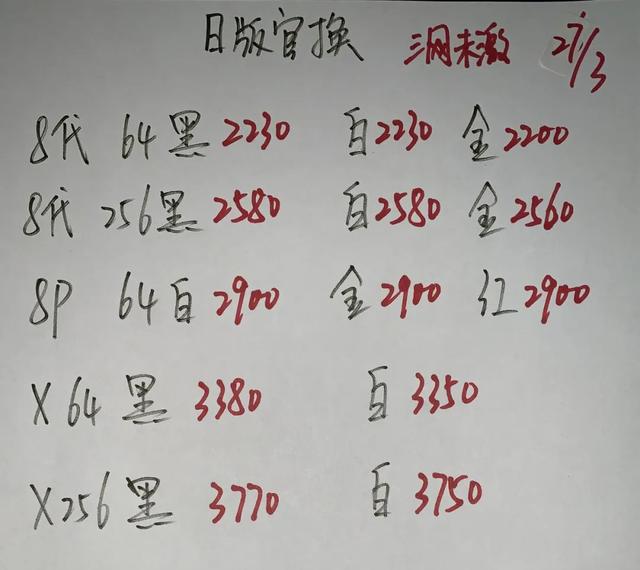 日版官换 三网未激 27/3
8代 64 黑 2230 白 2230 金 2200
8代 256 黑 2580 白 2580 金 2560
8P 64 白 2900 金 2900 红 2900
X 64 黑 3380 白 3350
X 256 黑 3770 白 3750